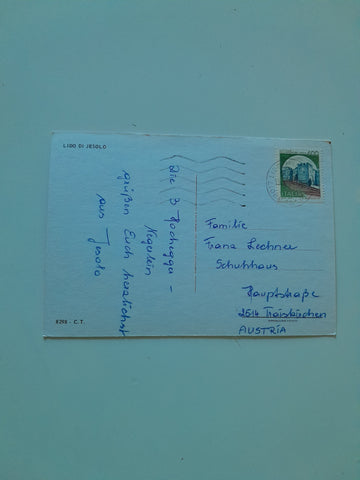 LIDO DI JESOLO
Die 3 Hochegger-
Negerlein
grüßen Euch herzlichst
aus Jesolo
Familie
Franz Lechner
Schuhhaus
Hauptstraße
2514 Traiskirchen
AUSTRIA
8298 - C.T.
400
ITALIA